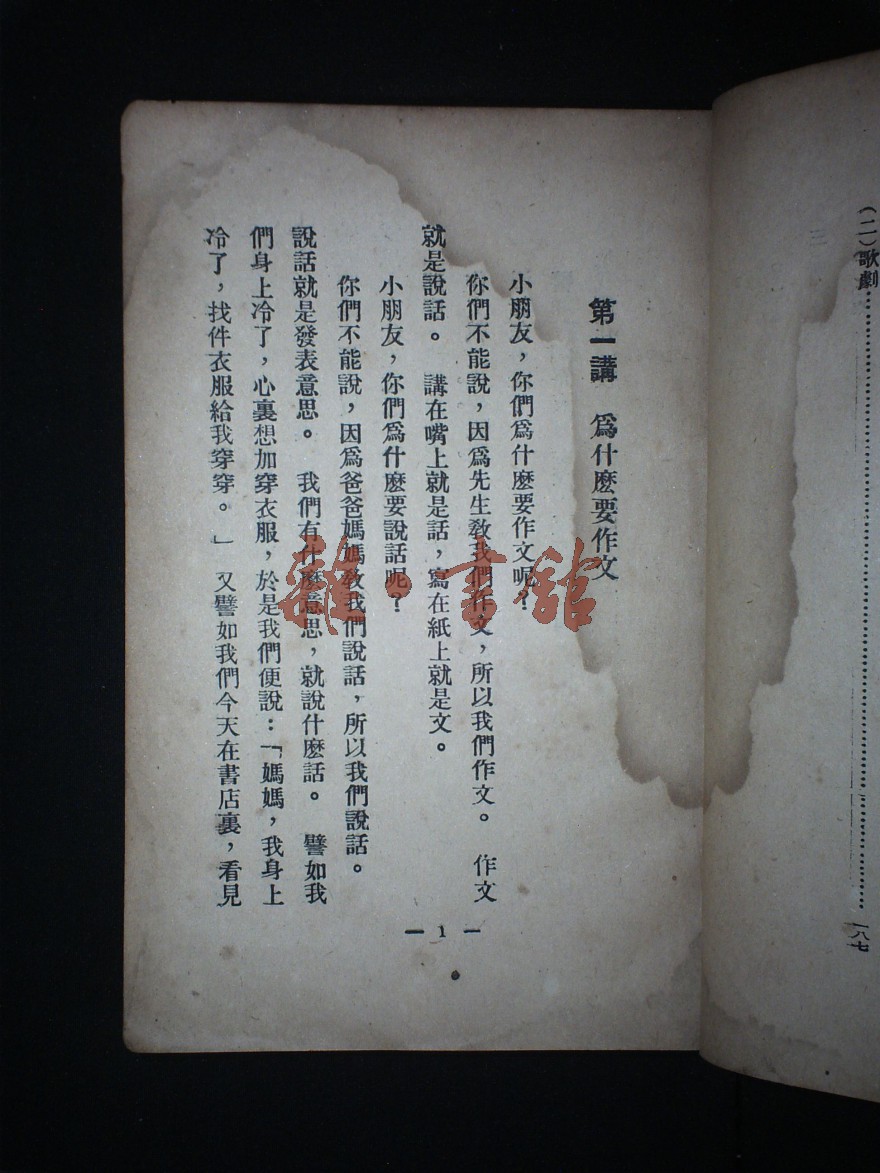 (二)歌劇……………………………………一八七
三
第一講　爲什麽要作文
小朋友，你們爲什麽要作文呢？
你們不能說，因爲先生敎我們作文，所以我們作文。　作文
就是說話。　講在嘴上就是話，寫在紙上就是文。
小朋友，你們爲什麽要說話呢？
你們不能說，因爲爸爸媽媽敎我們說話，所以我們說話。
說話就是發表意思。　我們有什麽意思，就說什麽話。　譬如我
們身上冷了，心裏想加穿衣服，於是我們便說：「媽媽，我身上
冷了，找件衣服給我穿穿。」　又譬如我們今天在書店裏，看見
— 1 —
龍·書館